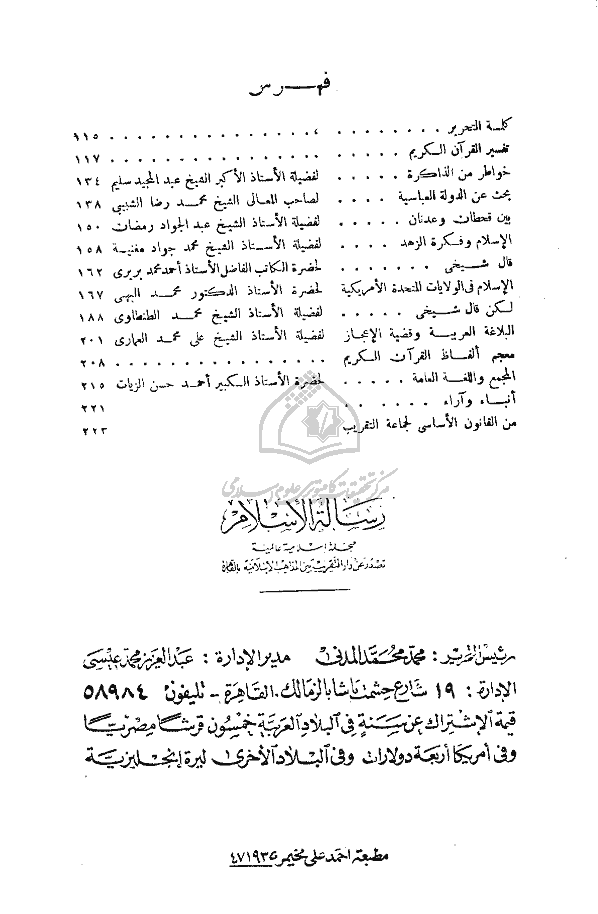 فهرس
كلمة التحرير . . . . . . . . . . . . . . . . . . . . . . ١١٥
تفسير القرآن الكريم . . . . . . . . . . . . . . . . . . . ١١٧
خواطر من الذاكرة . . . . . لفضيلة الأستاذ الأكبر الشيخ عبد المجيد سليم ١٣٤
بحث عن الدولة العباسية . . . . لصاحب المعالى الشيخ محمد رضا الشبيبى ١٣٨
بين قحطان وعدنان . . . . . لفضيلة الأستاذ الشيخ عبد الجواد رمضان ١٥٠
الإسلام وفكرة الزهد . . . . لفضيلة الأستاذ الشيخ محمد جواد مغنية ١٥٨
قال شيخى . . . . . . . لحضرة الكاتب الفاضل الأستاذ أحمد محمد بريرى ١٦٢
الإسلام فى الولايات المتحدة الأمريكية لحضرة الأستاذ الدكتور محمد البهى ١٦٧
لكن قال شيخى . . . . . لفضيلة الأستاذ الشيخ محمد الطنطاوى ١٨٨
البلاغة العربية وقضية الإعجاز لفضيلة الأستاذ الشيخ على محمد العمارى ٢٠١
معجم ألفاظ القرآن الكريم . . . . . . . . . . . . . . . ٢٠٨
المجمع واللغة العامة . . . . . لحضرة الأستاذ الكبير أحمد حسن الزيات ٢١٥
أنباء وآراء . . . . . . . . . . . . . . . . . ٢٢١
من القانون الأساسى لجماعة التقريب ٢٢٣
مركز تحقيقات كامپيوترى علوم اسلامى
رسالة الإسلام
مجلة إسلامية عالمية
تصدر عن دار التقريب بين المذاهب الإسلامية بالقاهرة
رئيس التحرير : محمد محمد المدنى مدير الإدارة : عبد العزيز محمد عيسى
الإدارة : ١٩ شارع حشمت باشا بالزمالك . القاهرة - تليفون ٥٨٩٨٤
قيمة الاشتراك عن سنة فى البلاد العربية خمسون قرشا مصريا
وفى أمريكا أربعة دولارات وفى البلاد الأخرى ليرة إنجليزية
مطبعة احمد على مخيمر ت ٤٧١٩٣